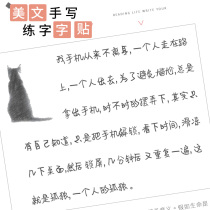 美文手写
MISSING LIFE WRITE YOUR
练字字贴
我手机从来不离身，一个人走在路
上，一个人出去，为了避免尴尬，总是
拿出手机，时不时的摆弄下，其实只
有自己知道，只是把手机解锁，看下时间，滑溜
几下桌面，然后锁屏，几分钟后又重复一遍，这
就是孤独，一个人的孤独。